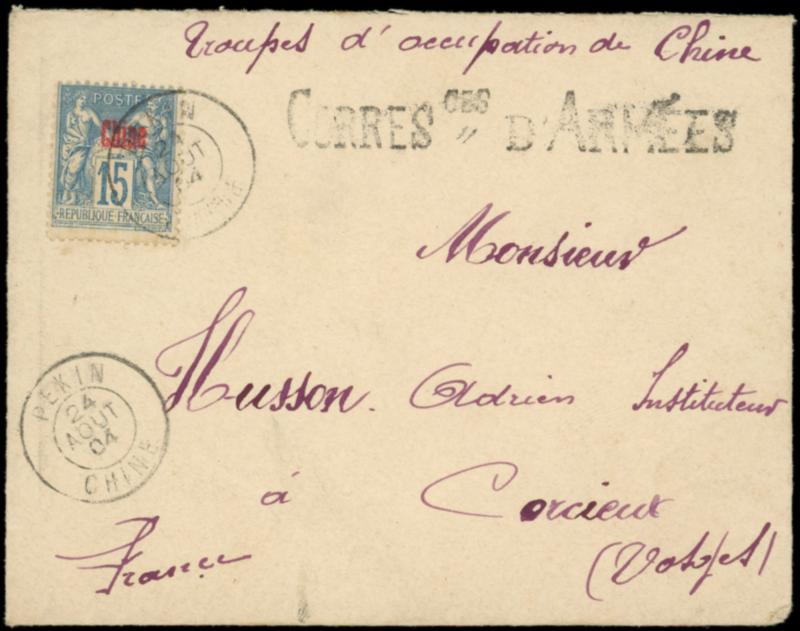 Troupes d'occupation de Chine
CORRES CES " D'ARMÉES
POSTE
Chine
15
REPUBLIQUE FRANÇAISE
24
AOUT
04
Monsieur
Husson. Adrien Instituteur
PEKIN
24
AOUT
04
CHINE
à Corcieux
France (Vosges)